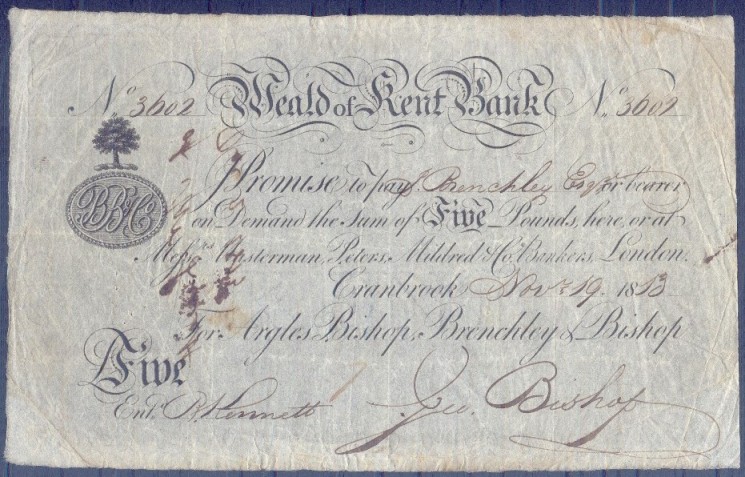 No. 3602 Weald of Kent Bank No. 3602
I Promise to pay J. Brenchley Esqr. or bearer
on Demand the Sum of Five Pounds, here, or at
Messrs. Masterman, Peters, Mildred & Co. Bankers, London.
Cranbrook Novr. 19 1813
For Argles Bishop, Brenchley & Bishop
Five
Entd. R. Kennett Geo. Bishop